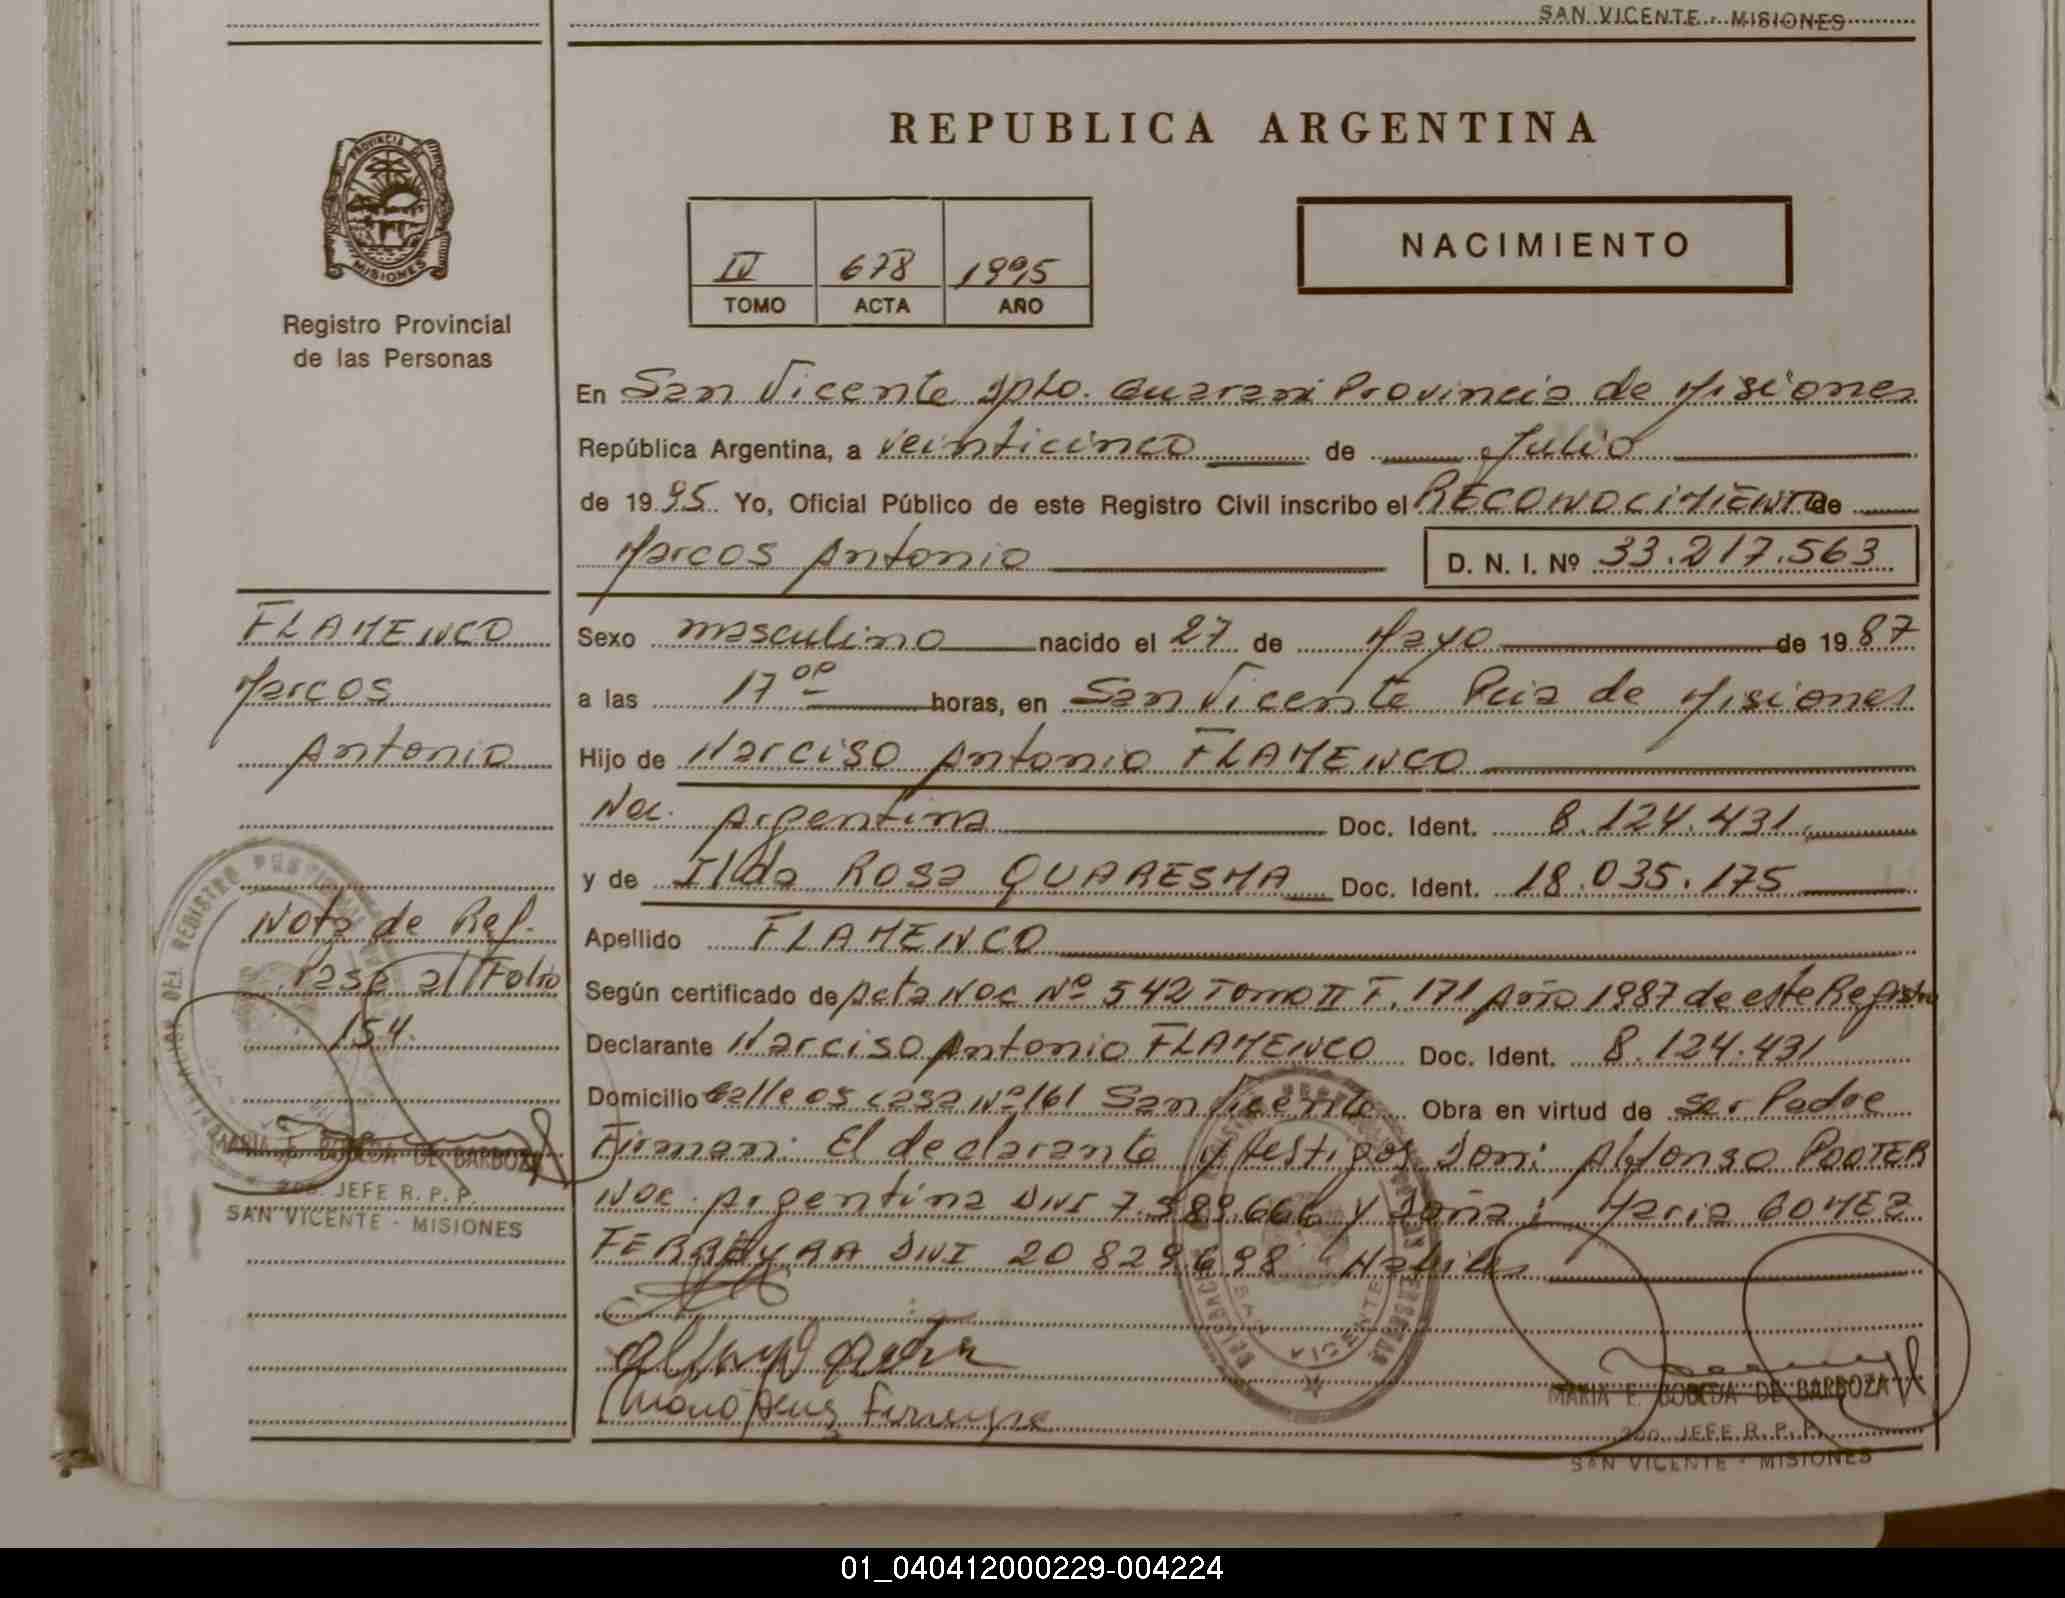 SAN VICENTE - MISIONES
PROVINCIA DE
MISIONES
Registro Provincial
de las Personas
REPUBLICA ARGENTINA
IV 678 1995
TOMO ACTA AÑO
NACIMIENTO
En San Vicente Dpto. Guarani Provincia de Misiones
República Argentina, a veinticinco de Julio
de 1995 Yo, Oficial Público de este Registro Civil inscribo el RECONOCIMIENTO de
Marcos Antonio D. N. I. Nº 33.217.563
FLAMENCO
Marcos
Antonio
Sexo masculino nacido el 27 de Mayo de 1987
a las 17 00 horas, en San Vicente Pcia de Misiones
Hijo de Narciso Antonio FLAMENCO
Nac. Argentina Doc. Ident. 8.124.431
y de Ilda Rosa QUARESMA Doc. Ident. 18.035.175
Apellido FLAMENCO
Según certificado de Acta Nac Nº 542 Tomo II F. 171 Año 1987 de este Registro
Declarante Narciso Antonio FLAMENCO Doc. Ident. 8.124.431
Domicilio Calle 05 casa Nº 161 San Vicente Obra en virtud de ser Padre
Firman: El declarante y testigos Don: Alfonso POOTER
Nac. Argentina DNI 7.589.666 y Doña: Maria GOMEZ
FERREYRA DNI 20 829.698 Habiles
Nota de Ref.
Pasa al Folio
154.
MARIA E. DE BARBOZA
2do. JEFE R. P. P.
SAN VICENTE - MISIONES
MARIA E. DE BARBOZA
2do. JEFE R. P. P.
SAN VICENTE - MISIONES
01_040412000229-004224